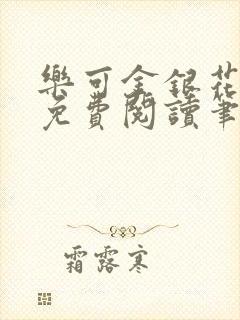 樂可金銀花
免費閱讀筆
霜露寒